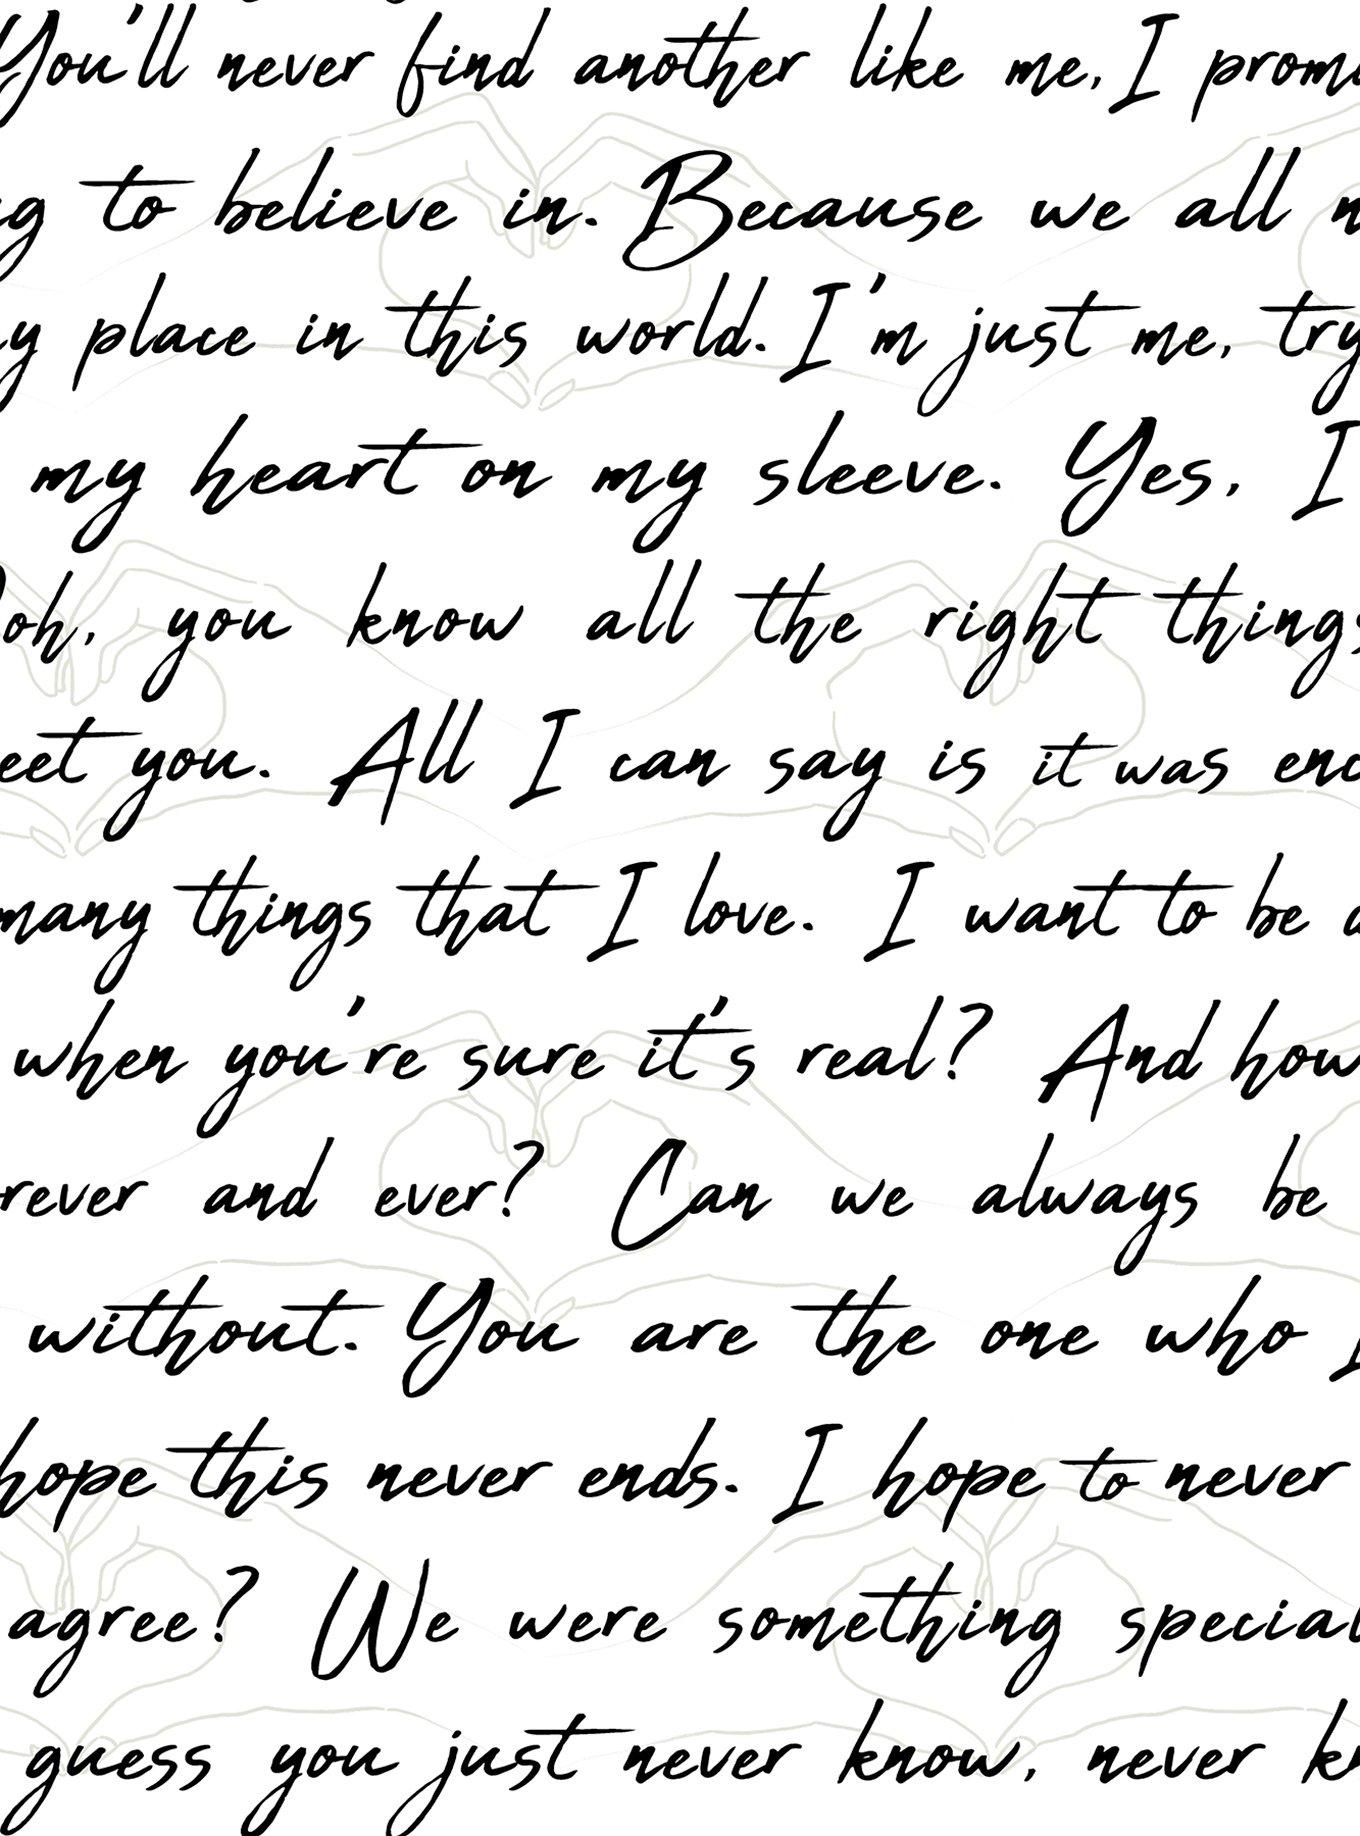 You'll never find another like me, I prom
to believe in. Because we all
place in this world. I'm just me, try
my heart on my sleeve. Yes, I
you know all the right things
you. All I can say is it was enc
many things that I love. I want to be a
when you're sure it's real? And how
rever and ever? Can we always be
without. You are the one who I
hope this never ends. I hope to never
agree? We were something special
guess you just never know, never kn